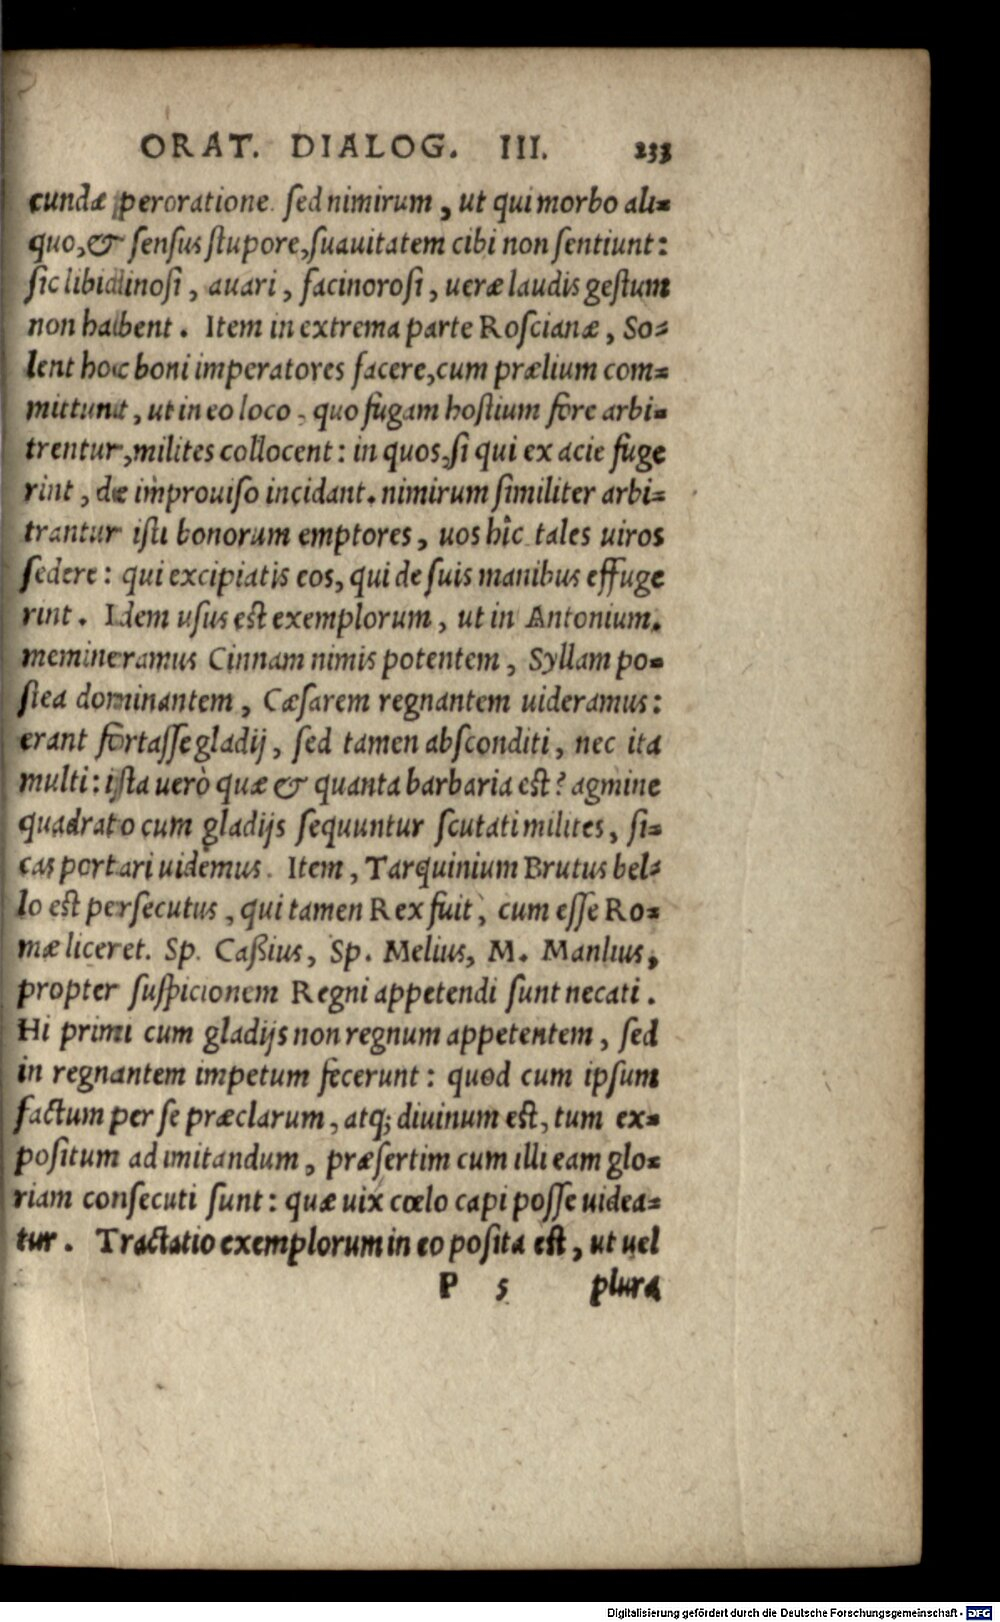 ORAT. DIALOG. III. 233
cundæ peroratione. sed nimirum, ut qui morbo ali=
quo, & sensus stupore, suauitatem cibi non sentiunt:
sic libidinosi, auari, facinorosi, ueræ laudis gestum
non habent. Item in extrema parte Roscianæ, So=
lent hoc boni imperatores facere, cum prælium com=
mittunt, ut in eo loco, quo fugam hostium fore arbi=
trentur, milites collocent: in quos, si qui ex acie fuge
rint, de improuiso incidant. nimirum similiter arbi=
trantur isti bonorum emptores, uos hîc tales uiros
sedere: qui excipiatis eos, qui de suis manibus effuge
rint. Idem usus est exemplorum, ut in Antonium.
memineramus Cinnam nimis potentem, Syllam po=
stea dominantem, Cæsarem regnantem uideramus:
erant fortasse gladij, sed tamen absconditi, nec ita
multi: ista uerò quæ & quanta barbaria est? agmine
quadrato cum gladijs sequuntur scutati milites, si=
cas portari uidemus. Item, Tarquinium Brutus bel=
lo est persecutus, qui tamen Rex fuit, cum esse Ro=
mæ liceret. Sp. Caßius, Sp. Melius, M. Manlius,
propter suspicionem Regni appetendi sunt necati.
Hi primi cum gladijs non regnum appetentem, sed
in regnantem impetum fecerunt: quod cum ipsum
factum per se præclarum, atq; diuinum est, tum ex=
positum ad imitandum, præsertim cum illi eam glo=
riam consecuti sunt: quæ uix cœlo capi posse uidea=
tur. Tractatio exemplorum in eo posita est, ut uel
P 5 plura
Digitalisierung gefördert durch die Deutsche Forschungsgemeinschaft - DFG